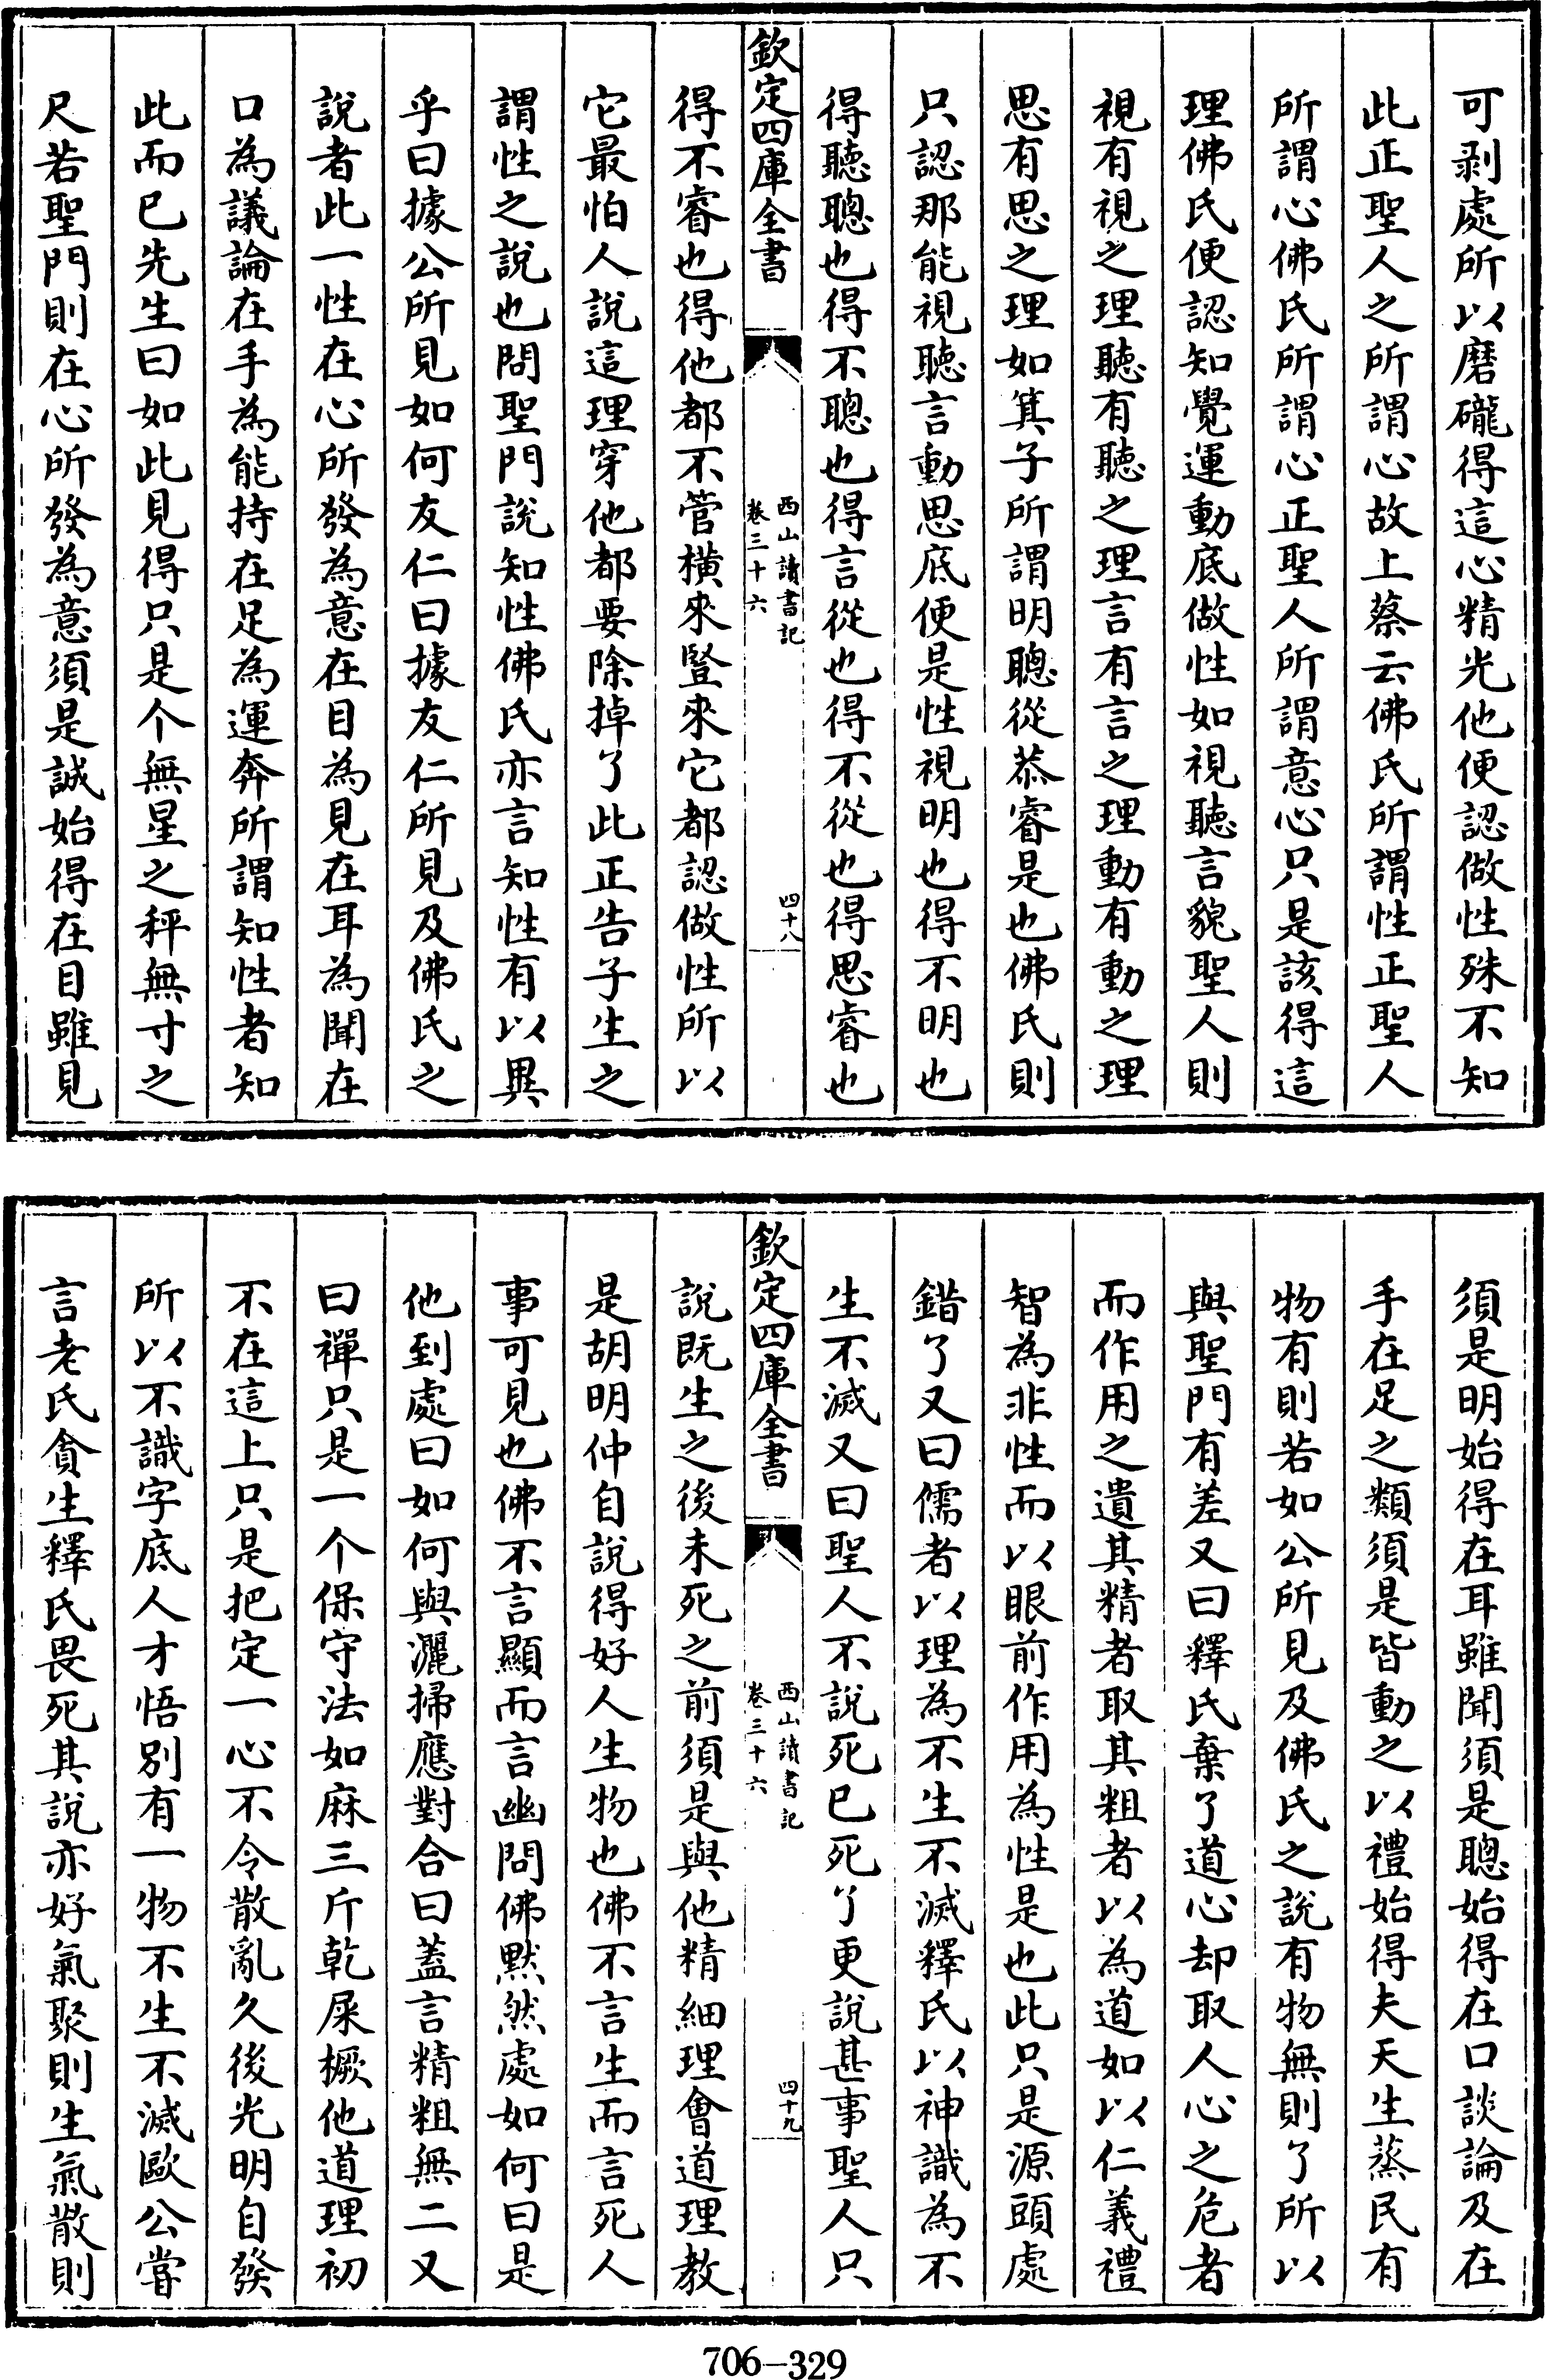 可剥處所以磨礲得這心精光他便認做性殊不知
此正聖人之所謂心故上蔡云佛氏所謂性正聖人
所謂心佛氏所謂心正聖人所謂意心只是該得這
理佛氏便認知覺運動底做性如視聽言貌聖人則
視有視之理聽有聽之理言有言之理動有動之理
思有思之理如箕子所謂明聰從恭睿是也佛氏則
只認那能視聽言動思底便是性視明也得不明也
得聽聰也得不聰也得言從也得不從也得思睿也
欽定四庫全書
西山讀書記
卷三十六
四十八
得不睿也得他都不管橫來豎來它都認做性所以
它最怕人說這理穿他都要除掉了此正告子生之
謂性之說也問聖門說知性佛氏亦言知性有以異
乎曰據公所見如何友仁曰據友仁所見及佛氏之
說者此一性在心所發為意在目為見在耳為聞在
口為議論在手為能持在足為運奔所謂知性者知
此而已先生曰如此見得只是个無星之秤無寸之
尺若聖門則在心所發為意須是誠始得在目雖見
須是明始得在耳雖聞須是聰始得在口談論及在
手在足之類須是皆動之以禮始得夫天生蒸民有
物有則若如公所見及佛氏之說有物無則了所以
與聖門有差又曰釋氏棄了道心却取人心之危者
而作用之遺其精者取其粗者以為道如以仁義禮
智為非性而以眼前作用為性是也此只是源頭處
錯了又曰儒者以理為不生不滅釋氏以神識為不
生不滅又曰聖人不說死已死了更說甚事聖人只
欽定四庫全書
西山讀書記
卷三十六
四十九
說既生之後未死之前須是與他精細理會道理教
是胡明仲自說得好人生物也佛不言生而言死人
事可見也佛不言顯而言幽問佛默然處如何曰是
他到處曰如何與灑掃應對合曰蓋言精粗無二又
曰禪只是一个保守法如麻三斤乾屎橛他道理初
不在這上只是把定一心不令散亂久後光明自發
所以不識字底人才悟別有一物不生不滅歐公嘗
言老氏貪生釋氏畏死其說亦好氣聚則生氣散則
706-329